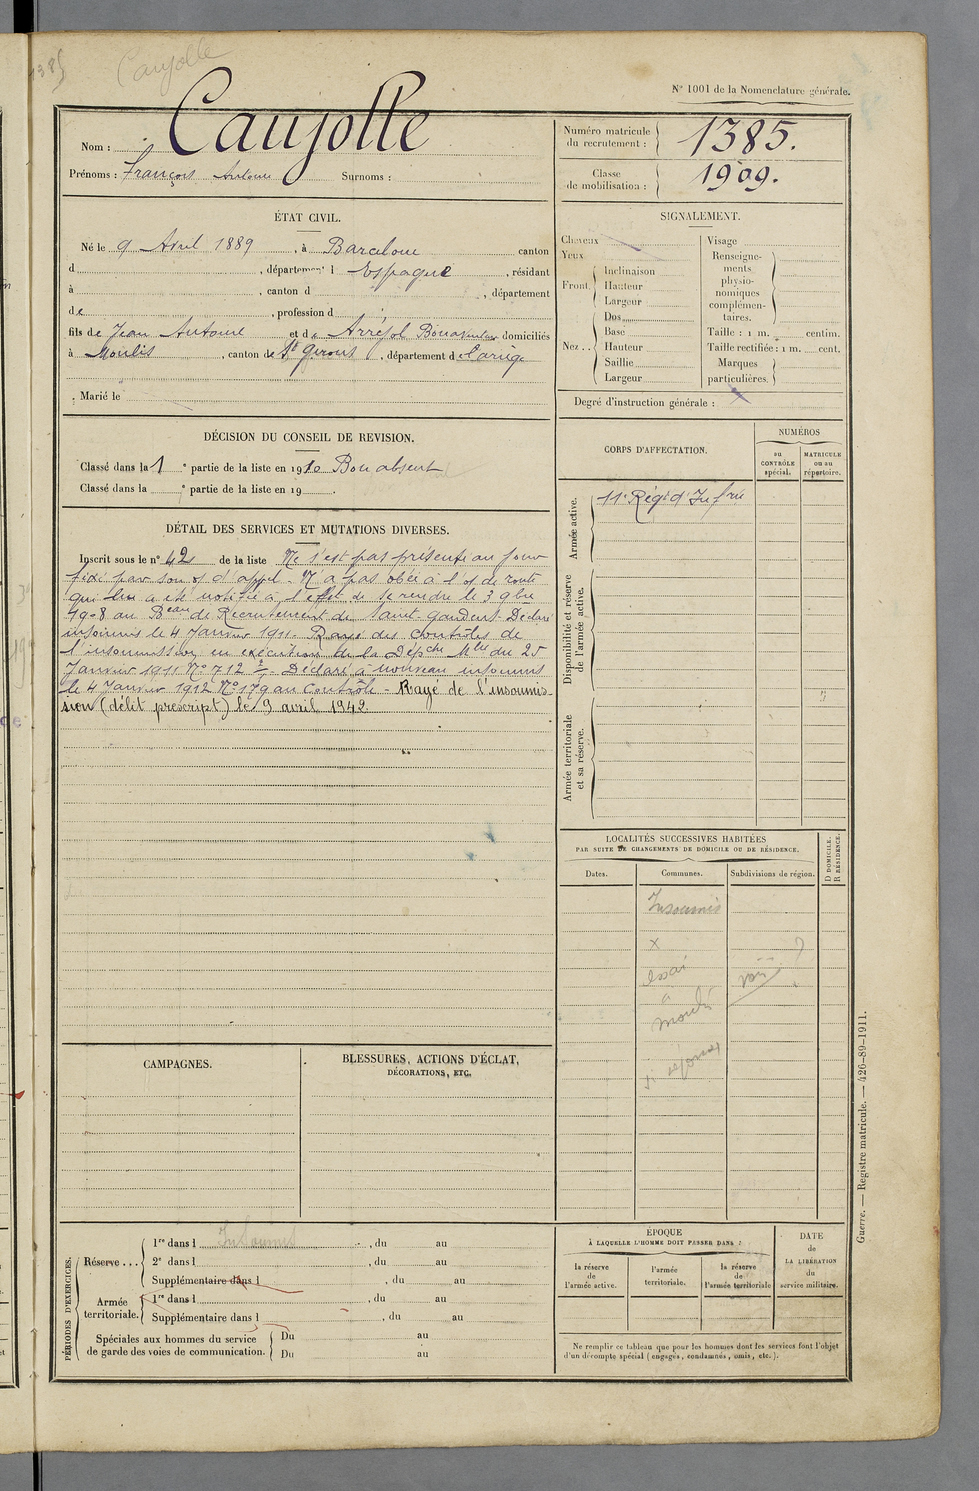 1385
Caujolle
N° 1001 de la Nomenclature générale.
Nom : Caujolle
Prénoms : François Antoine Surnoms :
Numéro matricule du recrutement : 1385.
Classe de mobilisation : 1909.
ÉTAT CIVIL.
Né le 9 Avril 1889, à Barcelone canton
d , département d Espagne, résidant
à , canton d , département
de , profession d
fils de Jean Antoine et de Arréjol Bonaventure domiciliés
à Moulis, canton de St Girons, département de l'ariège
Marié le
SIGNALEMENT.
Cheveux
Yeux
Front. Inclinaison
Hauteur
Largeur
Nez .. Dos
Base
Hauteur
Saillie
Largeur
Visage
Renseignements physionomiques complémentaires.
Taille : 1 m. centim.
Taille rectifiée : 1 m. cent.
Marques particulières.
Degré d'instruction générale :
DÉCISION DU CONSEIL DE REVISION.
Classé dans la 1e partie de la liste en 1910 Bon absent
Classé dans la e partie de la liste en 19 .
DÉTAIL DES SERVICES ET MUTATIONS DIVERSES.
Inscrit sous le n° 42 de la liste Ne s'est pas présenté au jour
fixé par son o/ d'appel - N'a pas obéi à l'o/ de route
qui lui a été notifié à l'effet de se rendre le 3 9bre
1908 au Beau de Recrutement de Saint gaudens. Déclaré
insoumis le 4 Janvier 1911. Rayé des contrôles de
l'insoumission en exécution de la Dépche Mlle du 25
Janvier 1911 N° 712 - Déclaré à nouveau insoumis
le 4 Janvier 1912 N° 179 au Contrôle - Rayé de l'insoumis-
sion (délit prescript) le 9 avril 1942.
CORPS D'AFFECTATION.
NUMÉROS
au CONTRÔLE spécial.
MATRICULE ou au répertoire.
Armée active.
11e Régt d'Infrie
Disponibilité et réserve de l'armée active.
Armée territoriale et sa réserve.
LOCALITÉS SUCCESSIVES HABITÉES
PAR SUITE DE CHANGEMENTS DE DOMICILE OU DE RÉSIDENCE.
Dates. Communes. Subdivisions de région.
D DOMICILE.
R RÉSIDENCE.
Insoumis
x
?
CAMPAGNES.
BLESSURES, ACTIONS D'ÉCLAT,
DÉCORATIONS, ETC.
PÉRIODES D'EXERCICES.
Réserve ... 1re dans l Insoumis , du au
2e dans l , du au
Supplémentaire dans l , du au
Armée territoriale. 1re dans l , du au
Supplémentaire dans l , du au
Spéciales aux hommes du service
de garde des voies de communication. Du au
Du au
ÉPOQUE
À LAQUELLE L'HOMME DOIT PASSER DANS :
la réserve de l'armée active.
l'armée territoriale.
la réserve de l'armée territoriale
DATE de LA LIBÉRATION du service militaire.
Ne remplir ce tableau que pour les hommes dont les services font l'objet
d'un décompte spécial (engagés, condamnés, omis, etc.).
Guerre. — Registre matricule. — 426-89-1911.